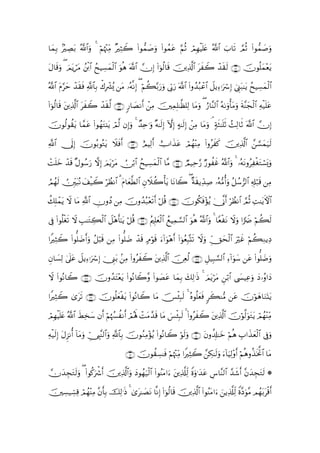 وَصَمُّوا۟ ثُمَّ تَابَ ٱللَّهُ عَلَيْهِمْ ثُمَّ عَمُوا۟ وَصَمُّوا۟ كَثِيرٌ مِّنْهُمْ ۚ وَٱللَّهُ بَصِيرٌۢ بِمَا
يَعْمَلُونَ ﴿٧١﴾ لَقَدْ كَفَرَ ٱلَّذِينَ قَالُوٓا۟ إِنَّ ٱللَّهَ هُوَ ٱلْمَسِيحُ ٱبْنُ مَرْيَمَ ۖ وَقَالَ
ٱلْمَسِيحُ يَـٰبَنِىٓ إِسْرَٰٓءِيلَ ٱعْبُدُوا۟ ٱللَّهَ رَبِّى وَرَبَّكُمْ ۖ إِنَّهُۥ مَن يُشْرِكْ بِٱللَّهِ فَقَدْ حَرَّمَ ٱللَّهُ
عَلَيْهِ ٱلْجَنَّةَ وَمَأْوَىٰهُ ٱلنَّارُ ۖ وَمَا لِلظَّـٰلِمِينَ مِنْ أَنصَارٍ ﴿٧٢﴾ لَّقَدْ كَفَرَ ٱلَّذِينَ قَالُوٓا۟
إِنَّ ٱللَّهَ ثَالِثُ ثَلَـٰثَةٍ ۘ وَمَا مِنْ إِلَـٰهٍ إِلَّآ إِلَـٰهٌ وَٰحِدٌ ۚ وَإِن لَّمْ يَنتَهُوا۟ عَمَّا يَقُولُونَ
لَيَمَسَّنَّ ٱلَّذِينَ كَفَرُوا۟ مِنْهُمْ عَذَابٌ أَلِيمٌ ﴿٧٣﴾ أَفَلَا يَتُوبُونَ إِلَى ٱللَّهِ
وَيَسْتَغْفِرُونَهُۥ ۚ وَٱللَّهُ غَفُورٌ رَّحِيمٌ ﴿٧٤﴾ مَّا ٱلْمَسِيحُ ٱبْنُ مَرْيَمَ إِلَّا رَسُولٌ قَدْ خَلَتْ
مِن قَبْلِهِ ٱلرُّسُلُ وَأُمُّهُۥ صِدِّيقَةٌ ۖ كَانَا يَأْكُلَانِ ٱلطَّعَامَ ۗ ٱنظُرْ كَيْفَ نُبَيِّنُ لَهُمُ
ٱلْـَٔايَـٰتِ ثُمَّ ٱنظُرْ أَنَّىٰ يُؤْفَكُونَ ﴿٧٥﴾ قُلْ أَتَعْبُدُونَ مِن دُونِ ٱللَّهِ مَا لَا يَمْلِكُ
لَكُمْ ضَرًّا وَلَا نَفْعًا ۚ وَٱللَّهُ هُوَ ٱلسَّمِيعُ ٱلْعَلِيمُ ﴿٧٦﴾ قُلْ يَـٰٓأَهْلَ ٱلْكِتَـٰبِ لَا تَغْلُوا۟ فِى
دِينِكُمْ غَيْرَ ٱلْحَقِّ وَلَا تَتَّبِعُوٓا۟ أَهْوَآءَ قَوْمٍ قَدْ ضَلُّوا۟ مِن قَبْلُ وَأَضَلُّوا۟ كَثِيرًا
وَضَلُّوا۟ عَن سَوَآءِ ٱلسَّبِيلِ ﴿٧٧﴾ لُعِنَ ٱلَّذِينَ كَفَرُوا۟ مِنۢ بَنِىٓ إِسْرَٰٓءِيلَ عَلَىٰ لِسَانِ
دَاوُۥدَ وَعِيسَى ٱبْنِ مَرْيَمَ ۚ ذَٰلِكَ بِمَا عَصَوا۟ وَّكَانُوا۟ يَعْتَدُونَ ﴿٧٨﴾ كَانُوا۟ لَا
يَتَنَاهَوْنَ عَن مُّنكَرٍ فَعَلُوهُ ۚ لَبِئْسَ مَا كَانُوا۟ يَفْعَلُونَ ﴿٧٩﴾ تَرَىٰ كَثِيرًا
مِّنْهُمْ يَتَوَلَّوْنَ ٱلَّذِينَ كَفَرُوا۟ ۚ لَبِئْسَ مَا قَدَّمَتْ لَهُمْ أَنفُسُهُمْ أَن سَخِطَ ٱللَّهُ عَلَيْهِمْ
وَفِى ٱلْعَذَابِ هُمْ خَـٰلِدُونَ ﴿٨٠﴾ وَلَوْ كَانُوا۟ يُؤْمِنُونَ بِٱللَّهِ وَٱلنَّبِىِّ وَمَآ أُنزِلَ إِلَيْهِ
مَا ٱتَّخَذُوهُمْ أَوْلِيَآءَ وَلَـٰكِنَّ كَثِيرًا مِّنْهُمْ فَـٰسِقُونَ ﴿٨١﴾
۞ لَتَجِدَنَّ أَشَدَّ ٱلنَّاسِ عَدَٰوَةً لِّلَّذِينَ ءَامَنُوا۟ ٱلْيَهُودَ وَٱلَّذِينَ أَشْرَكُوا۟ ۖ وَلَتَجِدَنَّ
أَقْرَبَهُم مَّوَدَّةً لِّلَّذِينَ ءَامَنُوا۟ ٱلَّذِينَ قَالُوٓا۟ إِنَّا نَصَـٰرَىٰ ۚ ذَٰلِكَ بِأَنَّ مِنْهُمْ قِسِّيسِينَ